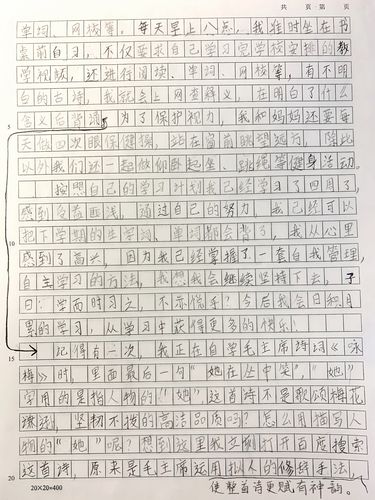 共 页 第 页
单词、网校等，每天早上八点，我准时坐在书
桌前自习，不仅要求自己学习完学校安排的教
学视频，还进行阅读、单词、网校等，有不明
白的古诗，我就会上网查释义，在明白了什么
含义后背诵。为了保护视力，我和妈妈还要每
天做四次眼保健操，站在窗前眺望远方，除此
以外我们还一起做仰卧起坐、跳绳等健身活动。
按照自己的学习计划我已经学习了四周了，
感到受益匪浅，通过自己的努力，我已经可以
把下学期的生字词、单词都会背了，我从心里
感到了高兴，因为我已经掌握了一套自我管理，
自主学习的方法，我想我会继续坚持下去，子
曰：学而时习之，不亦悦乎？今后我会日积月
累的学习，从学习中获得更多的快乐！
记得有一次，我正在自学毛主席诗词《咏
梅》时，里面最后一句“她在丛中笑”，“她”
字用的是指人物的“她”这首诗不是歌颂梅花
坚韧不拔的高洁品质吗？怎么用描写人
物的“她”呢？想到这里我立刻打开百度搜索
这首诗，原来是毛主席运用拟人的修辞手法，
20×20=400
使整首诗更赋有神韵。
5
10
15
20